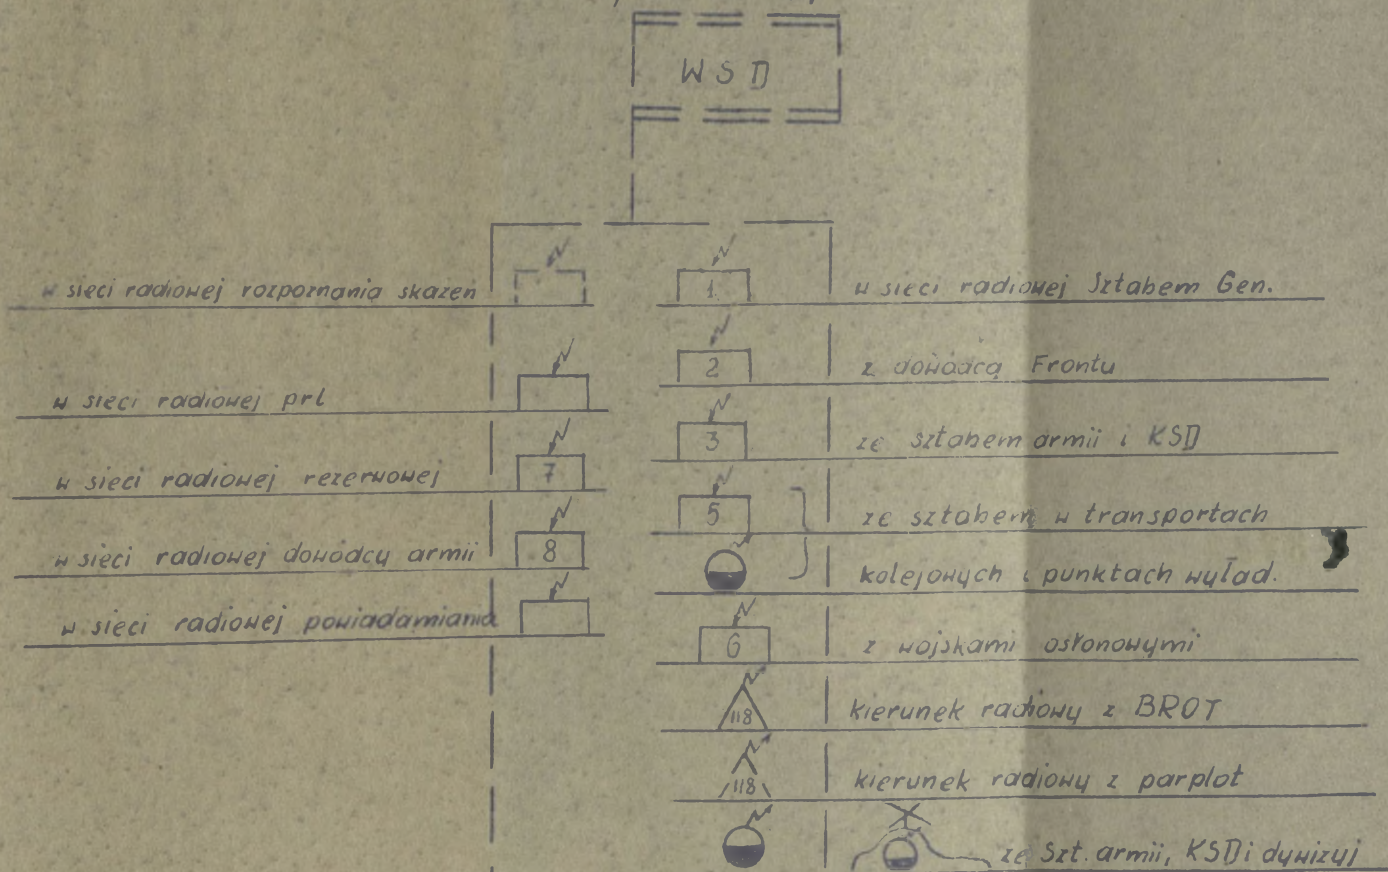 WSD
w sieci radiowej rozpoznania skażeń
w sieci radiowej prl
w sieci radiowej rezerwowej
7
w sieci radiowej dowódcy armii
8
w sieci radiowej powiadamiania
1
w sieci radiowej Sztabem Gen.
2
z dowódcą Frontu
3
ze sztabem armii i KSD
5
ze sztabem w transportach
kolejowych i punktach wyład.
6
z wojskami osłonowymi
118
kierunek radiowy z BROT
118
kierunek radiowy z parplot
ze Szt. armii, KSD i dywizyj